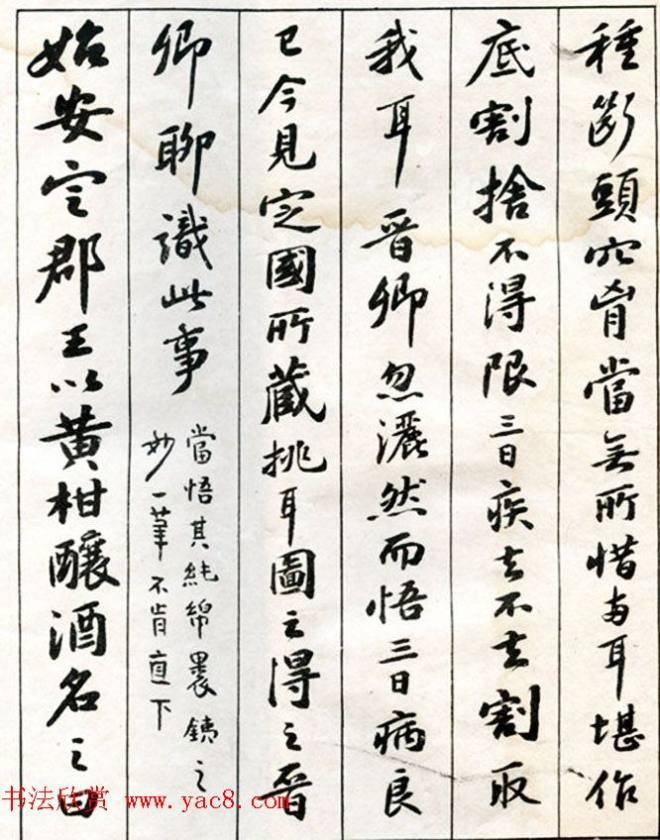 種斷頭穴胷當無所惜两耳堪作
底割捨不得限三日疾去不去割取
我耳晉卿忽灑然而悟三日病良
已今見定國所藏挑耳圖之得之晉
卿聊識此事
當悟其純綿裹鐵之
妙一筆不肯直下
始安定郡王以黃柑釀酒名之曰
书法欣赏 www.yac8.com